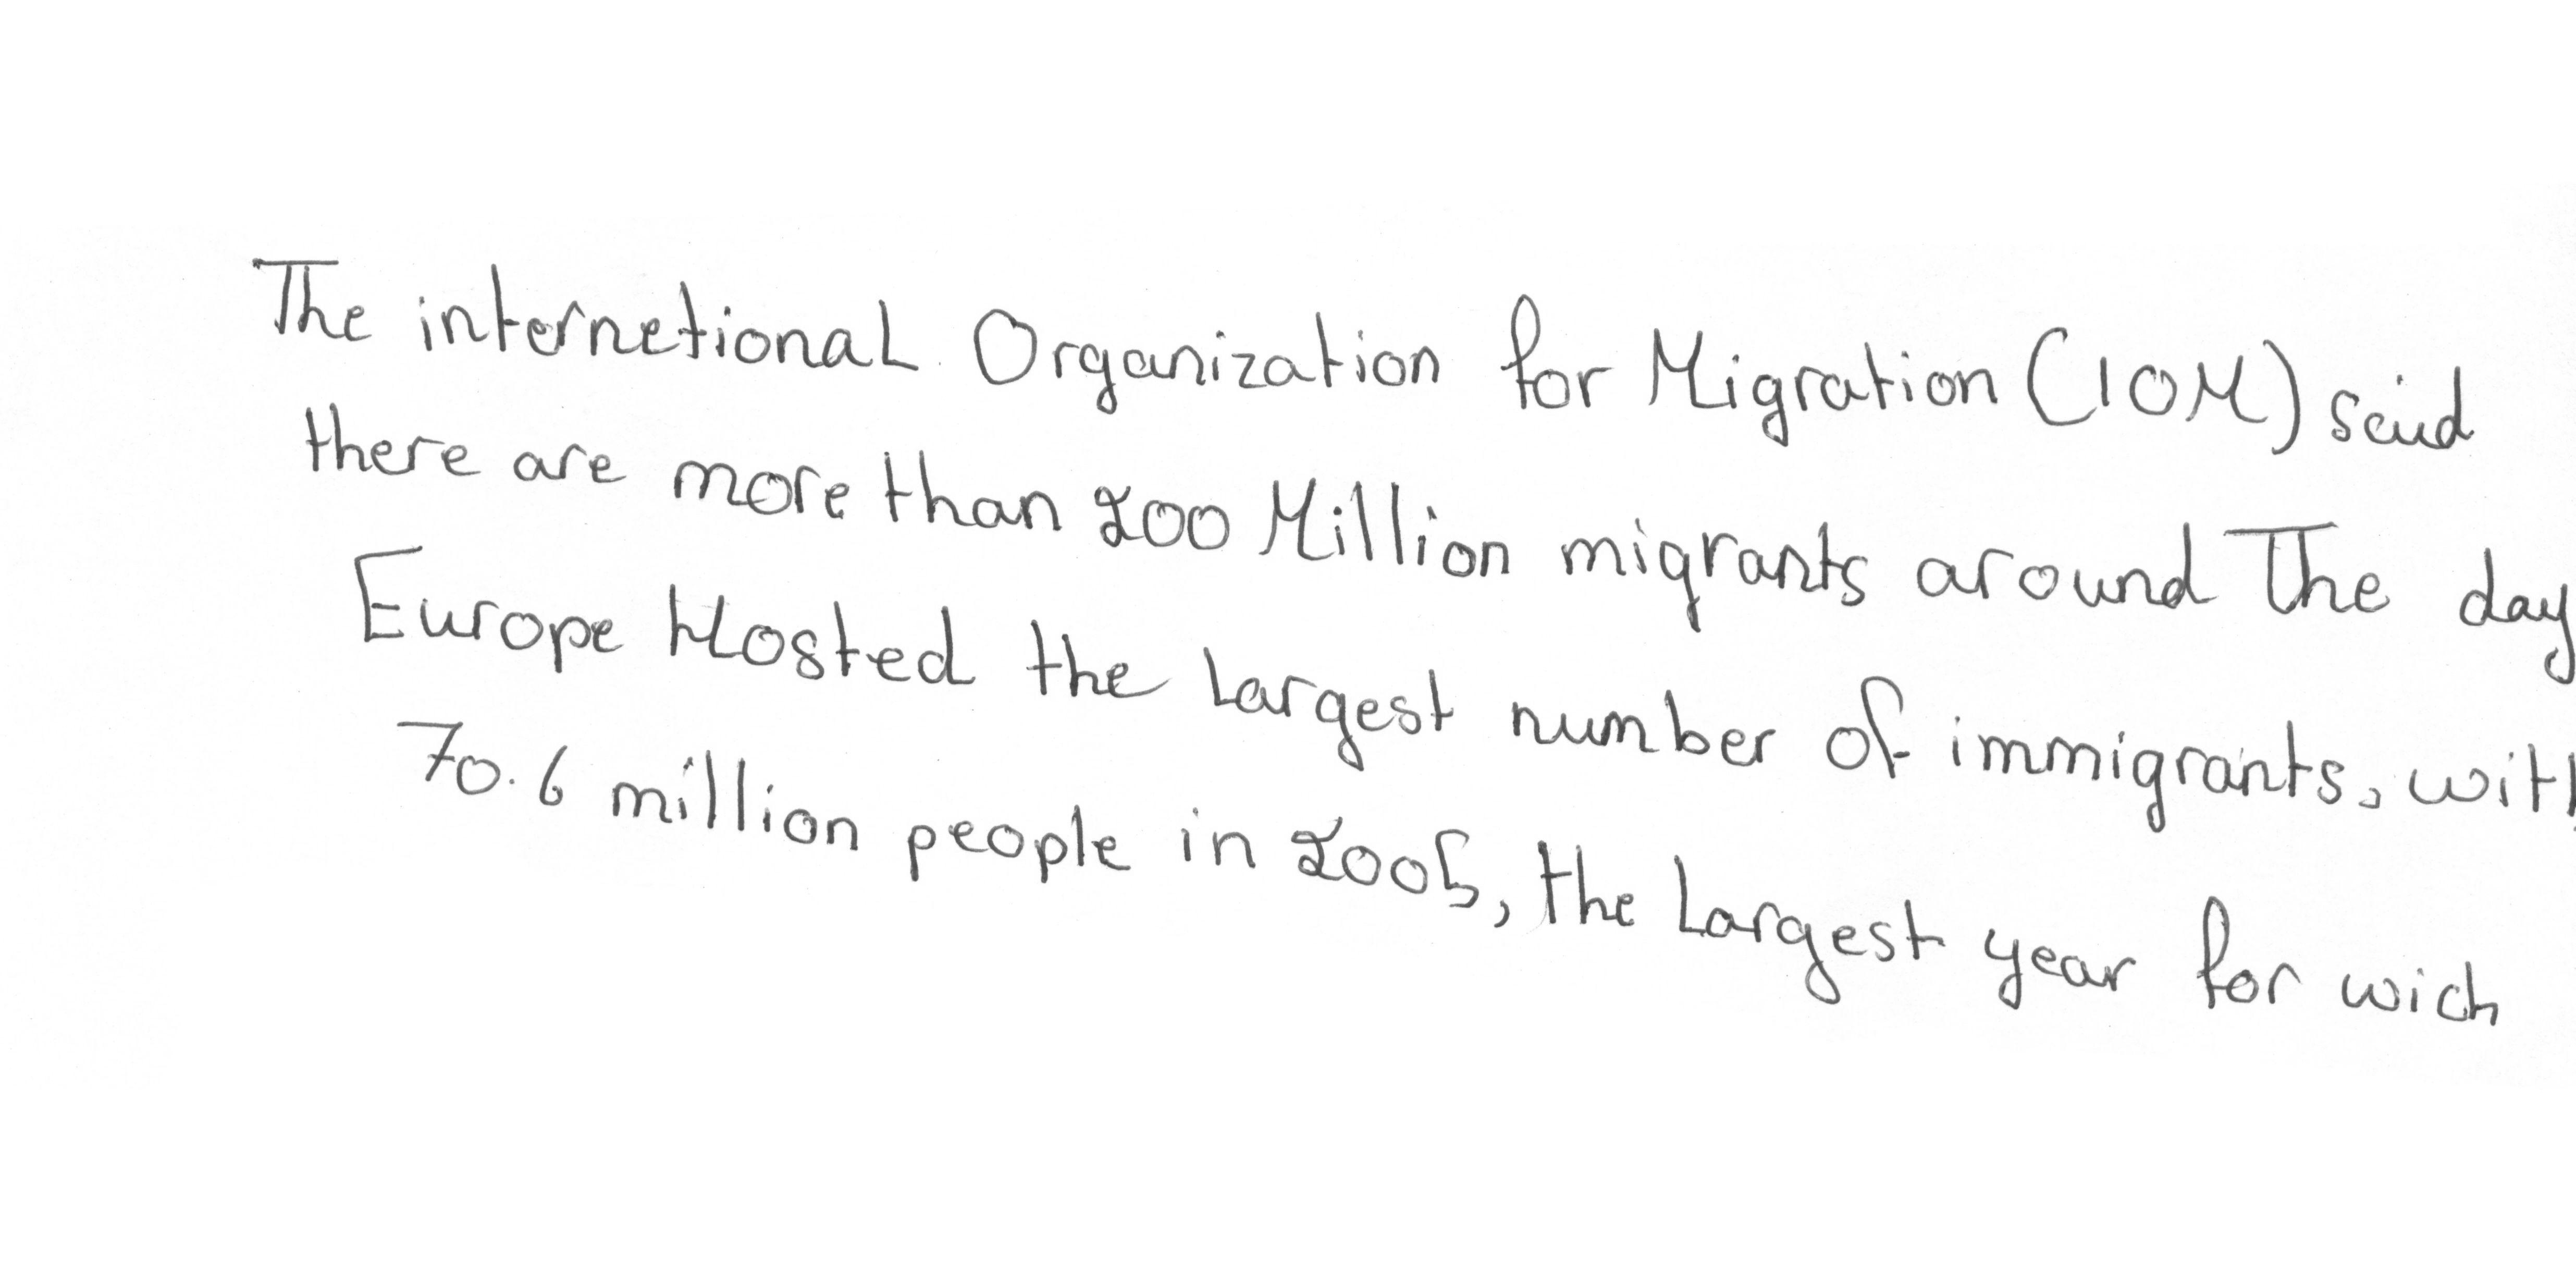 The internetional Organization for Migration (IOM) said
there are more than 200 Million migrants around The day
Europe Hosted the Largest number of immigrants, with
70.6 million people in 2005, the Largest year for wich